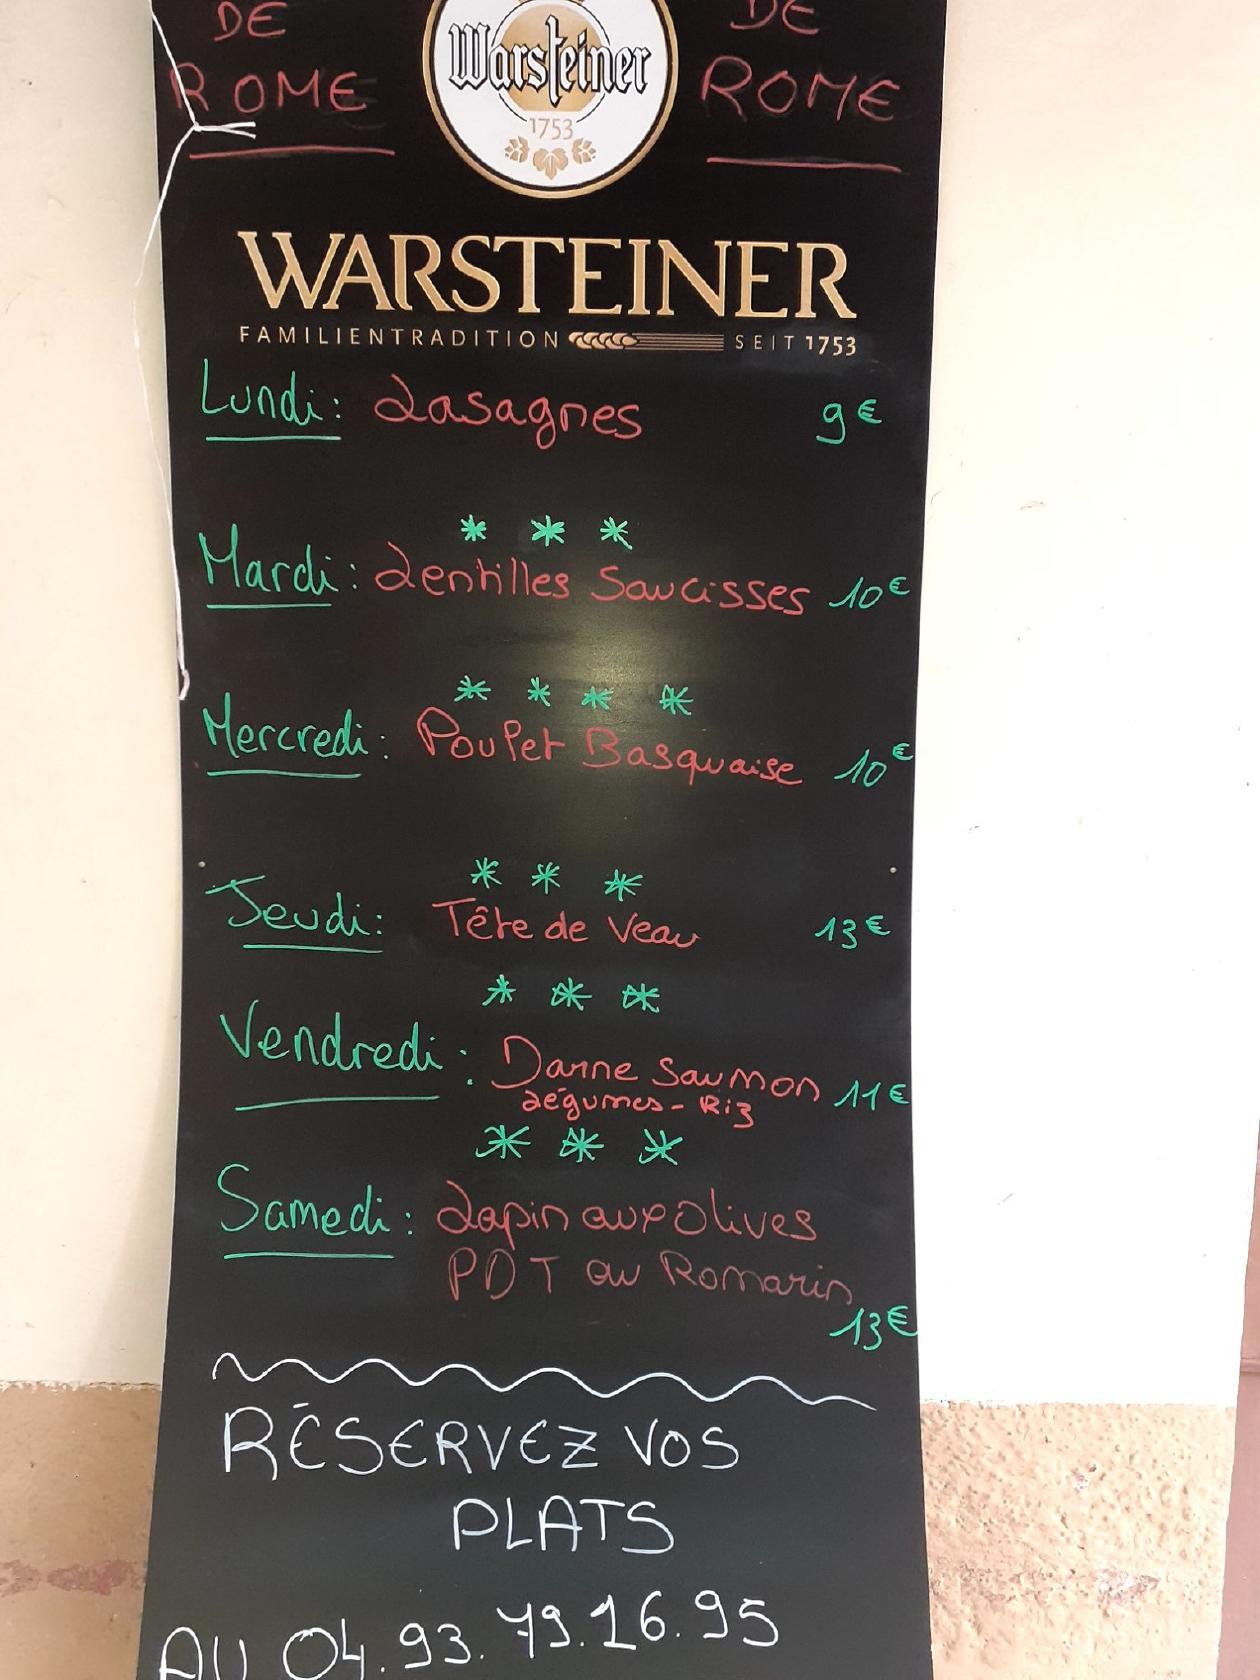 DE
DE
ROME
ROME
Warsteiner
1753
WARSTEINER
FAMILIENTRADITION SEIT 1753
Lundi : Lasagnes 9€
* * *
Mardi : Lentilles Saucisses 10€
* * * *
Mercredi : Poulet Basquaise 10€
* * *
Jeudi : Tête de Veau 13€
* * *
Vendredi : Darne Saumon 11€
Légumes - Riz
* * *
Samedi : Lapin aux Olives
PDT au Romarin
13€
RÉSERVEZ VOS
PLATS
AU 04.93.79.16.95